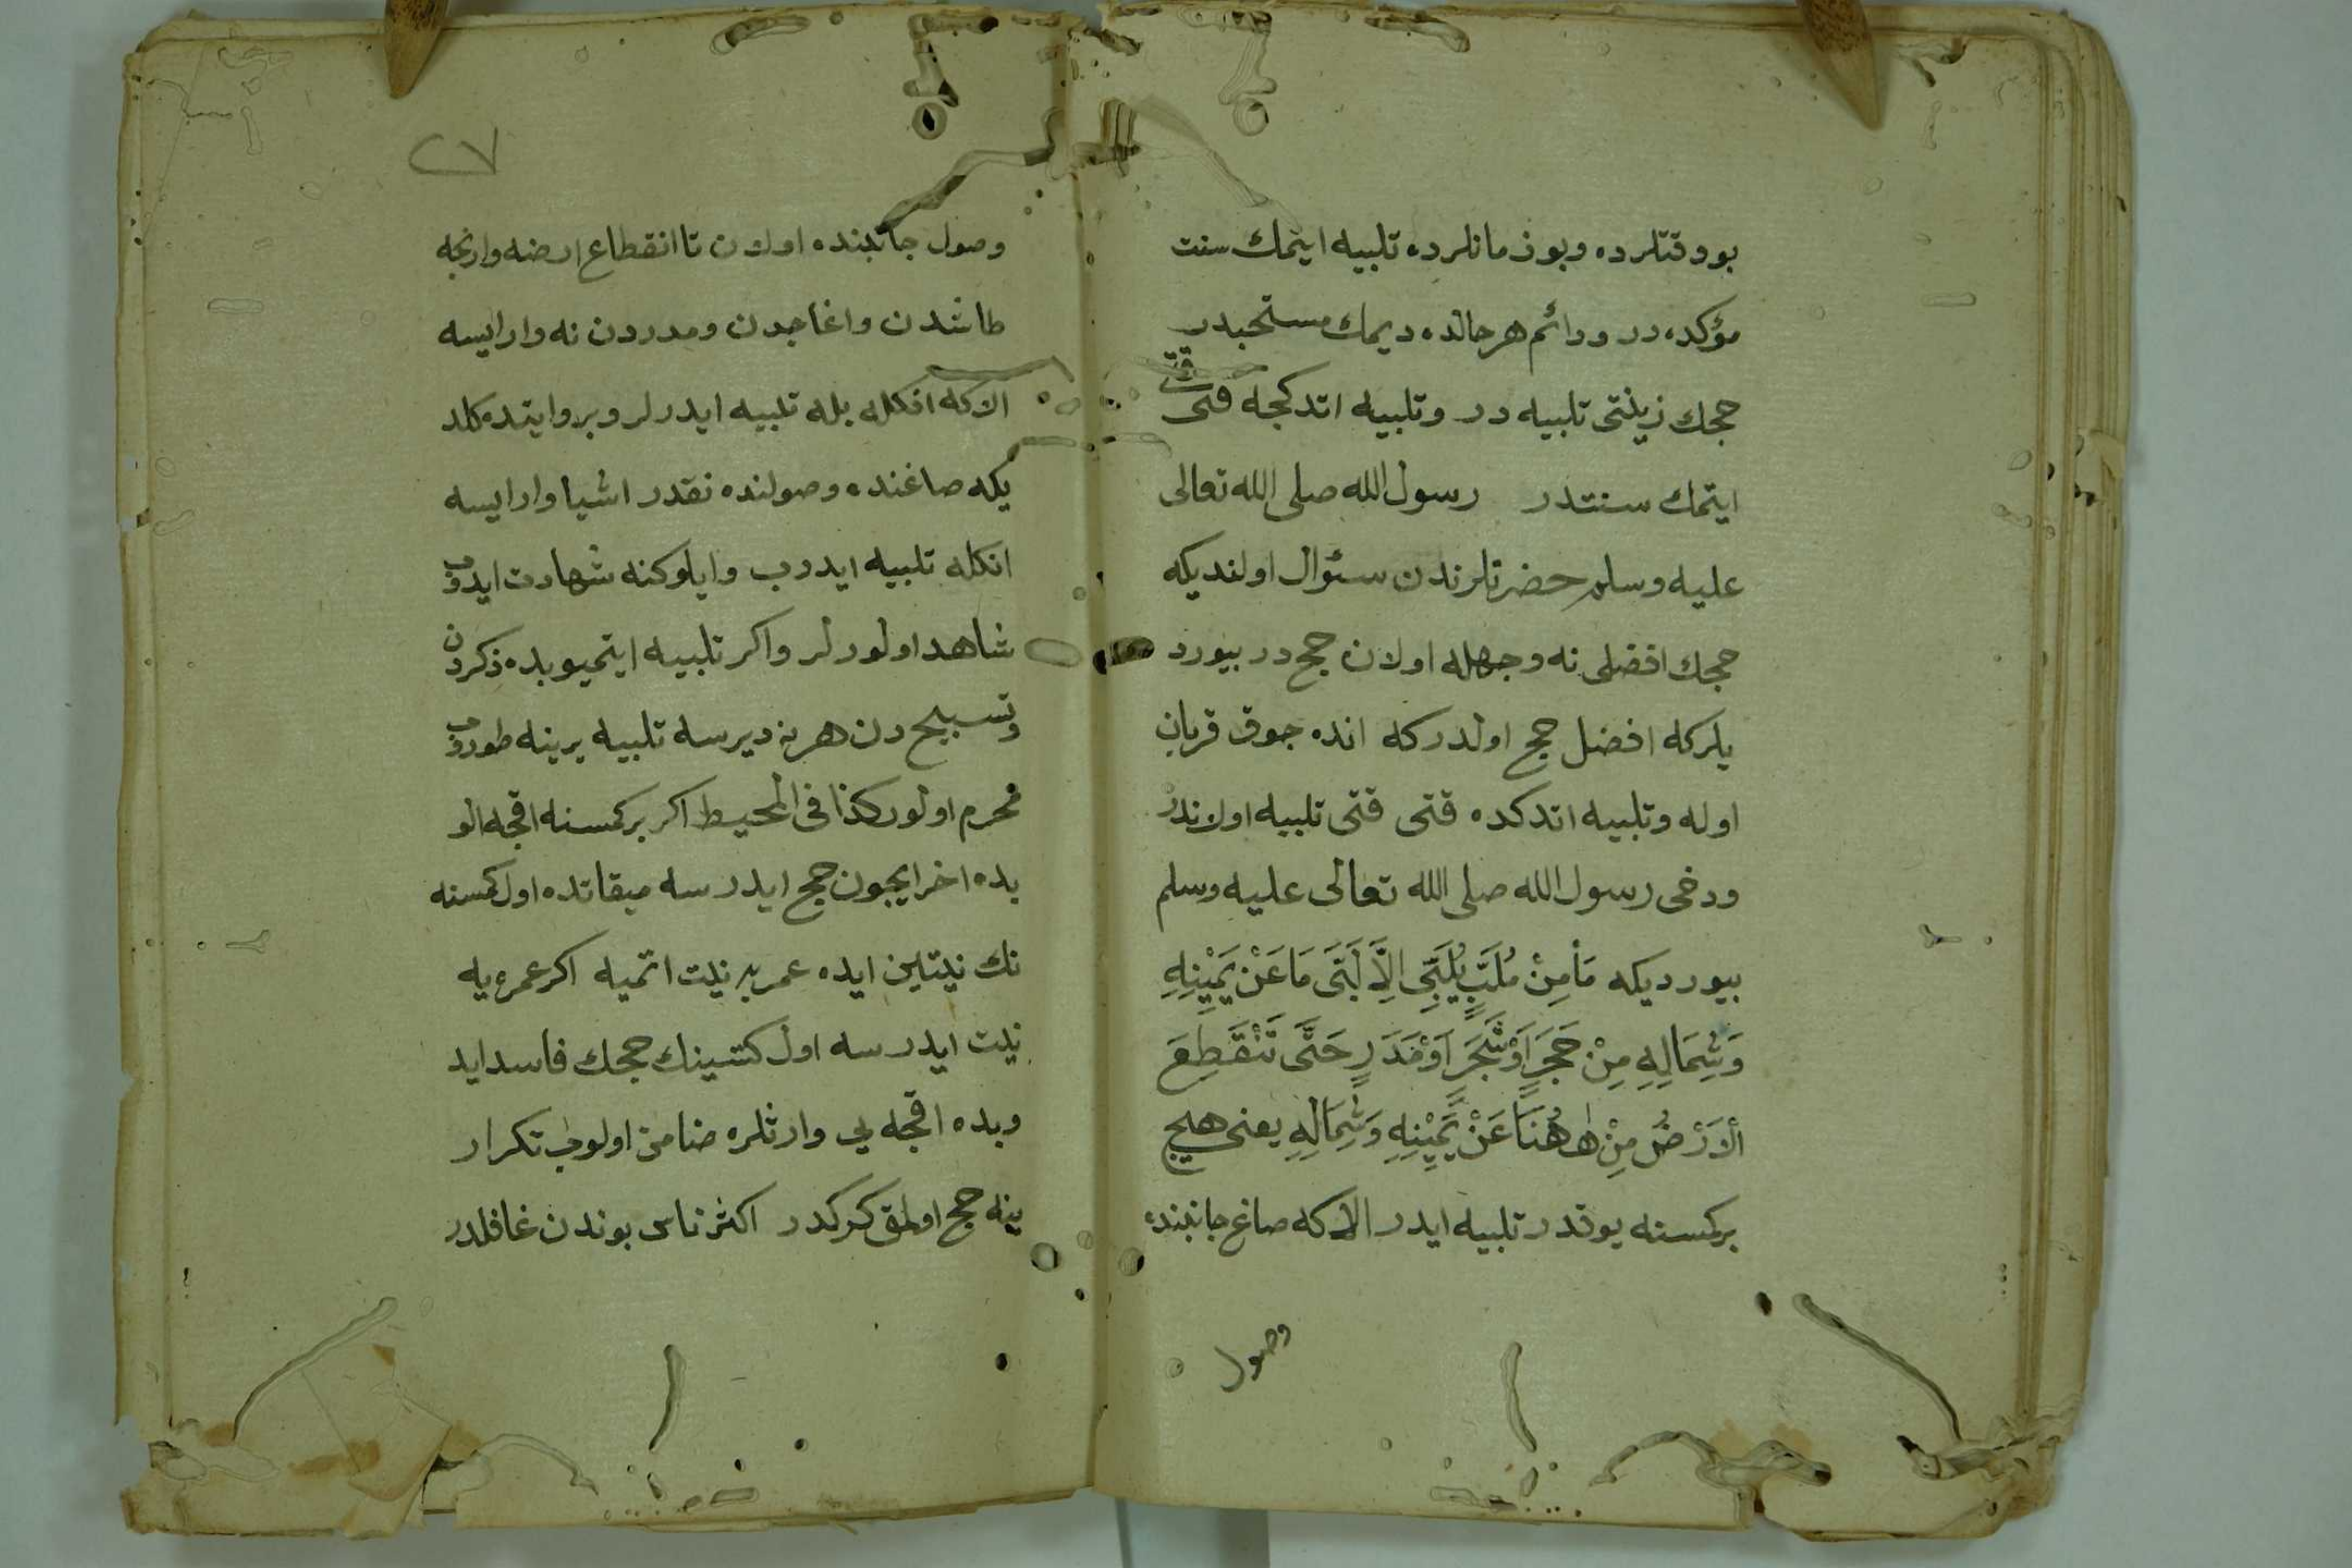 بو وقتلرده وبو زمانلرده تلبيه ايتمك سنت
مؤكده در ودائم هر حالده ديمك مستحبدر
حجك زينتى تلبيه در وتلبيه اتدكجه قتى قتى
ايتمك سنتدر رسول الله صلى الله تعالى
عليه وسلم حضرتلرندن سئوال اولنديكه
حجك افضلى نه وجهله اولان حج در بيورد
يلركه افضل حج اولدركه انده جوق قربان
اوله وتلبيه اتدكده قتى قتى تلبيه اولاندر
ودخى رسول الله صلى الله تعالى عليه وسلم
بيورديكه مَا مِنْ مُلَبٍّ يُلَبِّى اِلَّا لَبَّى مَا عَنْ يَمِيْنِهِ
وَشِمَالِهِ مِنْ حَجَرٍ اَوْ شَجَرٍ اَوْ مَدَرٍ حَتَّى تَنْقَطِعَ
اْلاَرْضُ مِنْ هٰهُنَا عَنْ يَمِيْنِهِ وَشِمَالِهِ يعنى هيج
بر كمسنه يوقدر تلبيه ايدر الا كه صاغ جانبنده
وصول
٢٧
وصول جانبنده اولان تا انقطاع ارضه وارنجه
طاشدن واغاجدن ومدردن نه وار ايسه
الا كه انكله بله تلبيه ايدرلر وبر روايتده كلد
يكه صاغنده وصولنده نقدر اشيا وار ايسه
انكله تلبيه ايدرب وايلوكنه شهادت ايدوب
شاهد اولورلر واكر تلبيه ايتميوبده ذكردن
وتسبيح دن هر نه ديرسه تلبيه يرينه طوروب
محرم اولور كذا فى المحيط اكر بر كمسنه اقجه الو
بده اخر ايجون حج ايدرسه ميقاتده اول كمسنه
نك نيتلين ايده عمريه نيت اتميه اكر عمره يه
نيت ايدرسه اول كشينك حجك فاسد ايد
وبده اقجه يي وارثلره ضامن اولوب تكرار
ينه حج اولمق كركدر اكثر ناس بوندن غافلدر